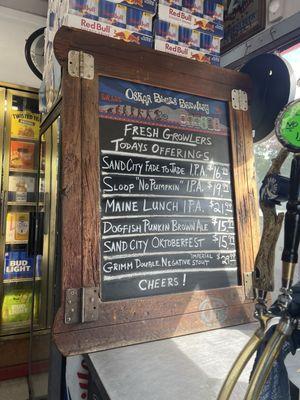 Red Bull
Red Bull
Red Bull
Oskar Blues Brewery
Fresh Growlers
Todays Offerings
Sand City Fade to Jade I.P.A. $16.99
Sloop No Pumpkin I.P.A. $19.99
Maine Lunch I.P.A. $21.99
Dogfish Punkin Brown Ale $15.99
Sand City Oktoberfest $15.99
Grimm Double Negative Imperial Stout $28.99
Cheers!
TWISTED TEA
BUD
LIGHT